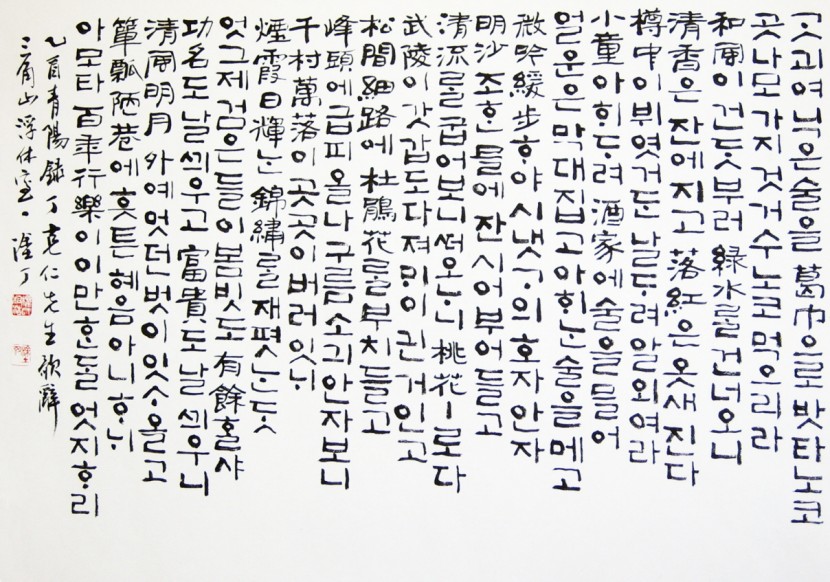 ᄀᆞᆺ괴여닉은술을葛巾으로밧타노코
곳나모가지것거수노코먹으리라
和風이건ᄃᆞᆺ부러綠水ᄅᆞᆯ건너오니
清香은잔에지고落紅은옷새진다
樽中이뷔엿거ᄃᆞᆫ날ᄃᆞ려알외여라
小童아ᄒᆡᄃᆞ려酒家에술을믈어
얼운은막대집고아ᄒᆡᄂᆞᆫ술을메고
微吟緩步ᄒᆞ야시냇ᄀᆞ의호자안자
明沙조ᄒᆞᆫ믈에잔시어부어들고
清流ᄅᆞᆯ굽어보니ᄯᅥ오ᄂᆞ니桃花ㅣ로다
武陵이갓갑도다져ᄆᆡ이긘거인고
松間細路에杜鵑花ᄅᆞᆯ부치들고
峰頭에급피올나구름소긔안자보니
千村萬落이곳곳이버러잇ᄂᆡ
煙霞日輝ᄂᆞᆫ錦繡ᄅᆞᆯ재폇ᄂᆞᆫᄃᆞᆺ
엇그제검은들이봄빗도有餘ᄒᆞᆯ샤
功名도날ᄭᅴ우고富貴도날ᄭᅴ우니
清風明月外예엇던벗이잇ᄉᆞ올고
簞瓢陋巷에흣튼혜음아니ᄒᆞᄂᆡ
아모타百年行樂이이만ᄒᆞᆫᄃᆞᆯ엇지ᄒᆞ리
乙酉青陽錄丁克仁先生歌辭
三角山浮休室